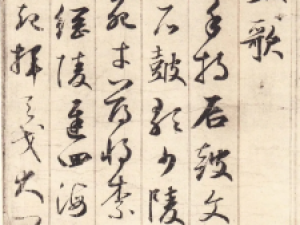 歌
手持石鼓文
石鼓歌少陵
死才薄將奈
綱陵遲四海
起揮天戈大